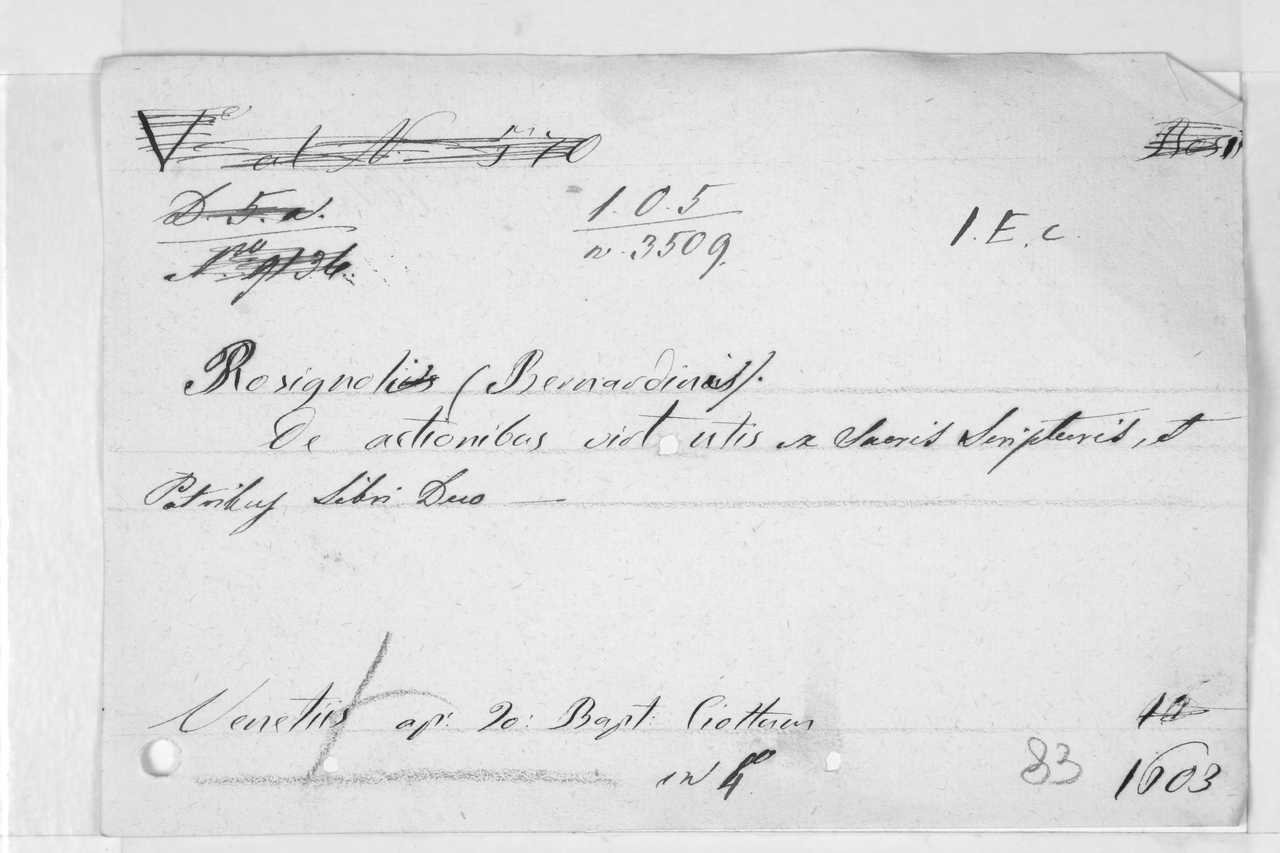 al N. 570
D. 5. a. 1. 0. 5 1. E. c.
n. 3509
Rosignolius (Bernardinus).
De actionibus virtutis ex Sacris Scripturis, et
Patribus Libri Duo —
Venetiis ap: Io: Bapt: Ciottum
in 4º 83 1603